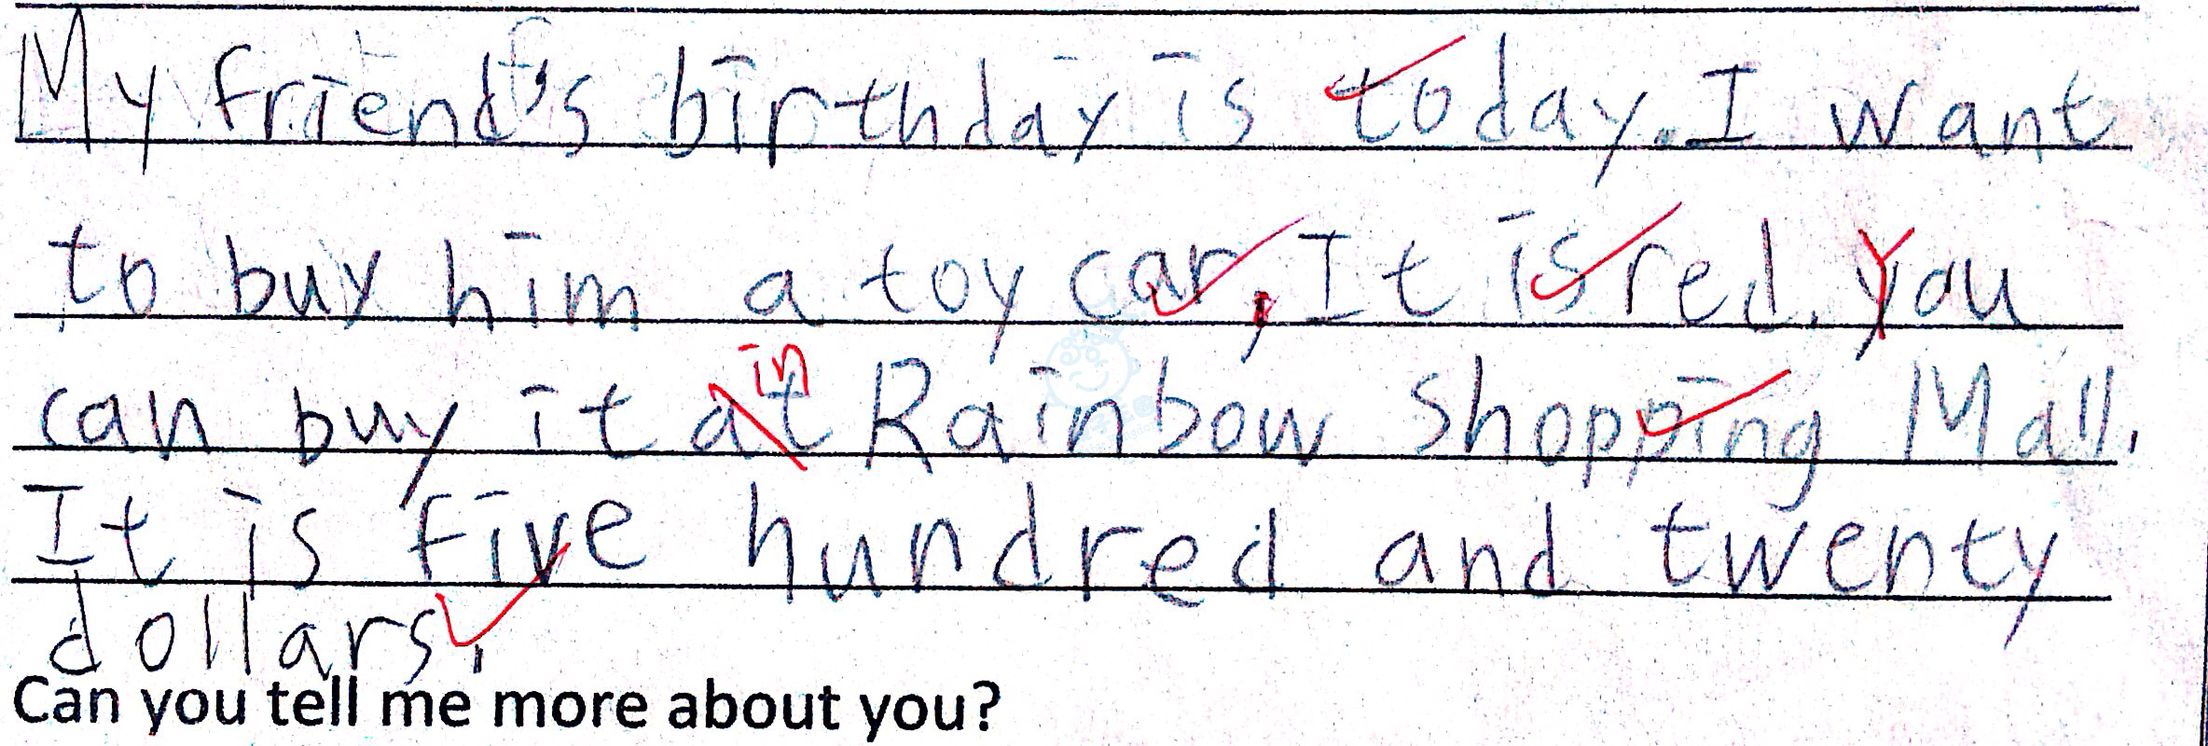 My friend's birthday is today. I want
to buy him a toy car, It is red. You
can buy it at in Rainbow shopping Mall.
It is five hundred and twenty
dollars.
Can you tell me more about you?